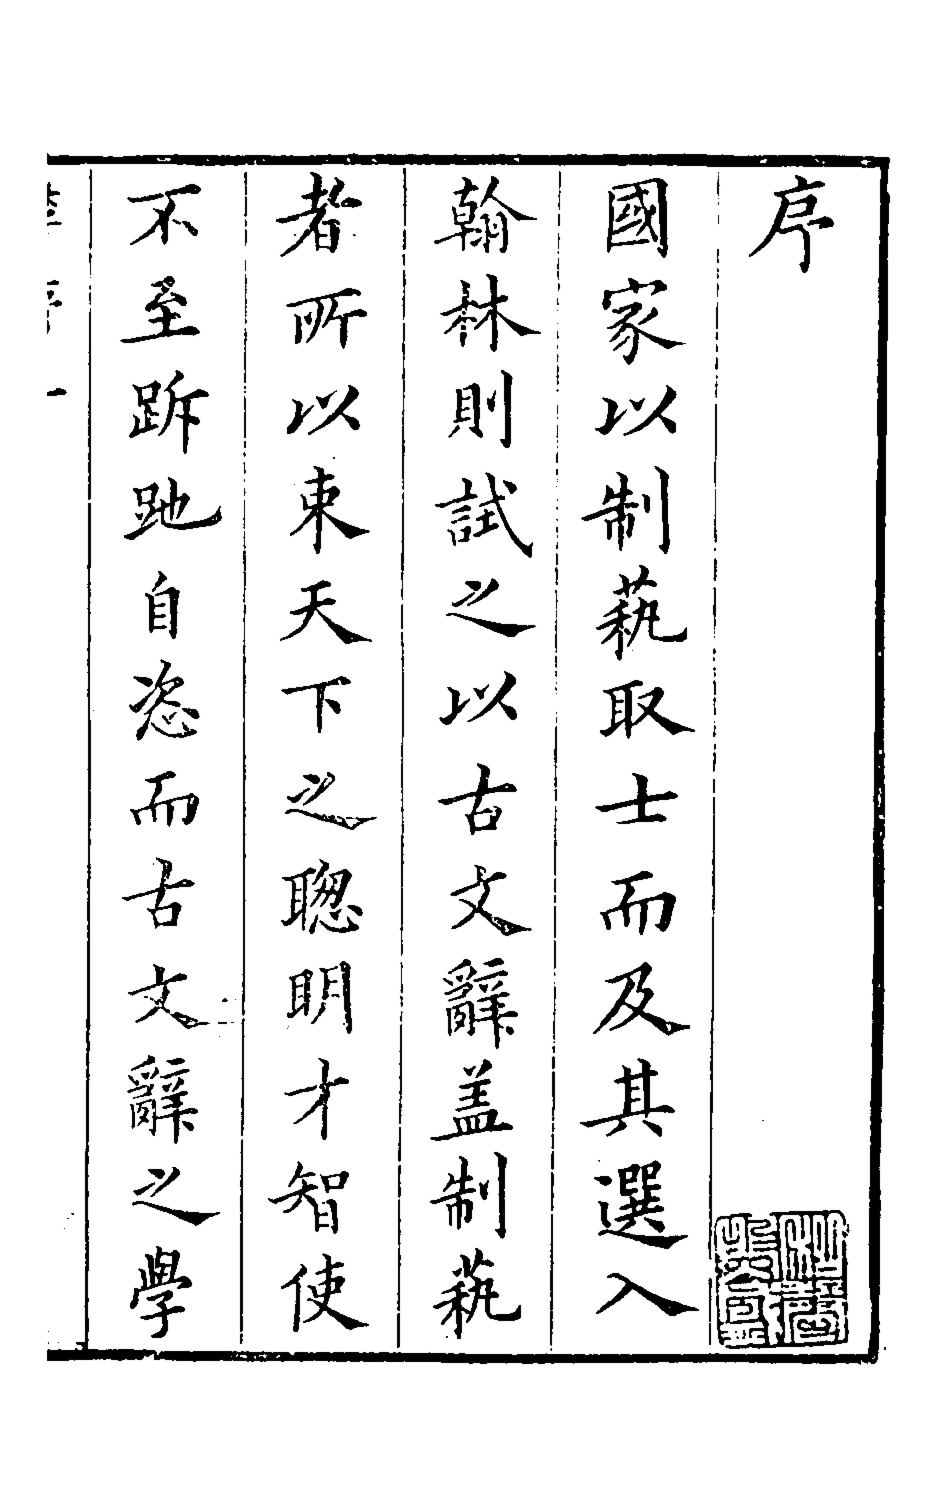 序
國家以制蓺取士而及其選入
翰林則試之以古文辭盖制蓺
者所以柬天下之聰明才智使
不至跅跑自恣而古文辭之學